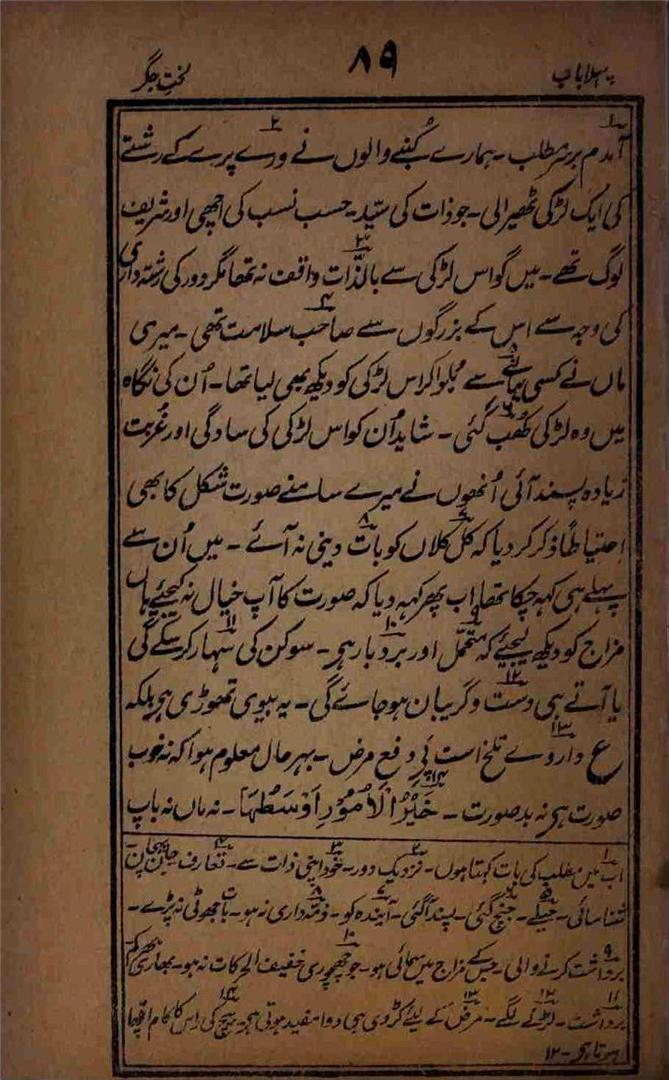 پہلا باب ۸۹ لختِ جگر
آمدم برسرِ مطلب۔ ہمارے کُنبے والوں نے ورے پرے کے رشتے
کی ایک لڑکی ٹھیرالی۔ جو ذات کی سیّد۔ حسب نسب کی اچھی اور شریف
لوگ تھے۔ میں گو اس لڑکی سے بالذّات واقف نہ تھا مگر دور کی رشتہ داری
کی وجہ سے اس کے بزرگوں سے صاحب سلامت تھی۔ میری
ماں نے کسی بہانے سے بُلوا کر اس لڑکی کو دیکھ بھی لیا تھا۔ اُن کی نگاہ
میں وہ لڑکی کُھب گئی۔ شاید اُن کو اس لڑکی کی سادگی اور غُربت
زیادہ پسند آئی اُنھوں نے میرے سامنے صورت شکل کا بھی
احتیاطاً ذکر کر دیا کہ کل کلاں کو بات دینی نہ آئے۔ میں اُن سے
پہلے ہی کہہ چکا تھا اب پھر کہہ دیا کہ صورت کا آپ خیال نہ کیجئے ہاں
مزاج کو دیکھ لیجئے کہ متحمّل اور بردبار ہی۔ سوکن کی سہار کر سکے گی
یا آتے ہی دست و گریبان ہو جائے گی۔ یہ بیوی تھوڑی ہی بلکہ
ع داروے تلخ است پئے دفع مرض۔ بہرحال معلوم ہوا کہ نہ خوب
صورت ہی نہ بدصورت۔ خَیْرُ الْاُمُوْرِ اَوْسَطُہَا۔ نہ ماں نہ باپ
۱ اب میں مطلب کی بات کہتا ہوں۔ ۲ نزدیک دور۔ ۳ خود اپنی ذات سے۔ ۴ تعارف جان پہچان
شناسائی۔ ۵ حیلے۔ ۶ جنچ گئی۔ پسند آگئی۔ ۷ آیندہ کو۔ ۸ ذمّہ داری نہ ہو۔ بات جھوٹی نہ پڑے۔
۹ برداشت کرنے والی۔ ۱۰ جس کے مزاج میں سمائی ہو۔ جو چھچوری خفیف الحرکات نہ ہو۔ بھاری بھرکم
۱۱ برداشت۔ ۱۲ لڑنے لگے۔ ۱۳ مرض کے لیئے کڑوی ہی دوا مفید ہوتی ہی۔ ۱۴ بیچ کی راس کا کام اچھا
ہوتا ہی۔ ۱۲